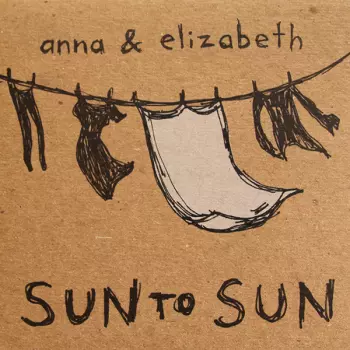 anna & elizabeth
SUN TO SUN